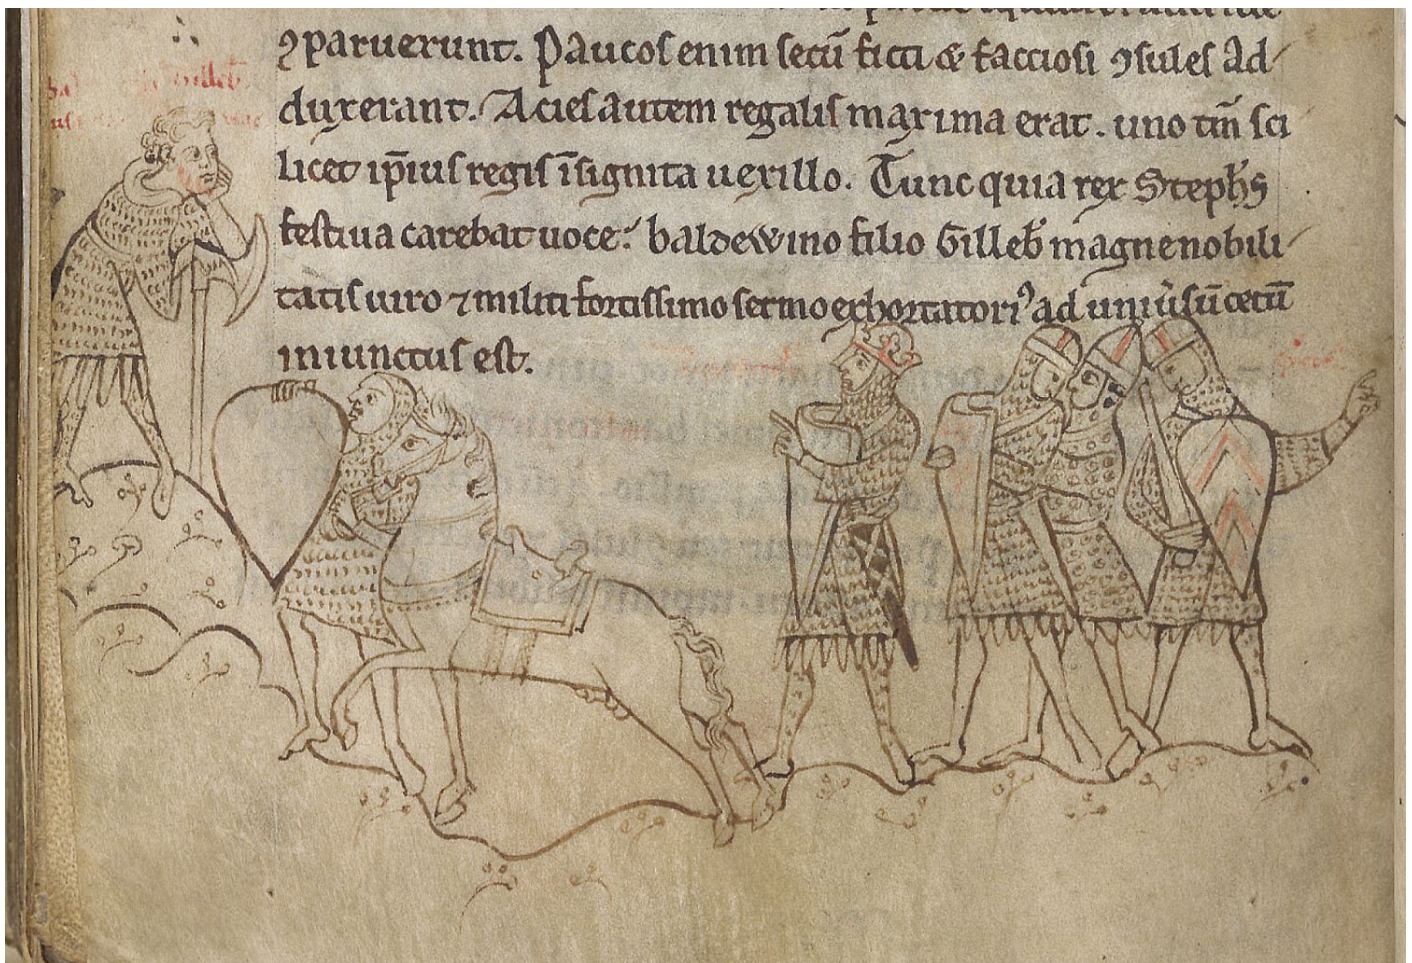 ꝯparuerunt. Paucos enim secū ficti & facciosi ꝯsules ad-
duxerant. Acies autem regalis maxima erat. uno tm̄ sci
licet ip̄ius regis īsignita uexillo. Tunc quia rex Steph̄s
festiua carebat uoce: baldewino filio Gilleb̄ magne nobili-
tatis uiro ⁊ militi fortissimo sermo exhortatoriꝰ ad
iniunctus est.
Gilleb̄